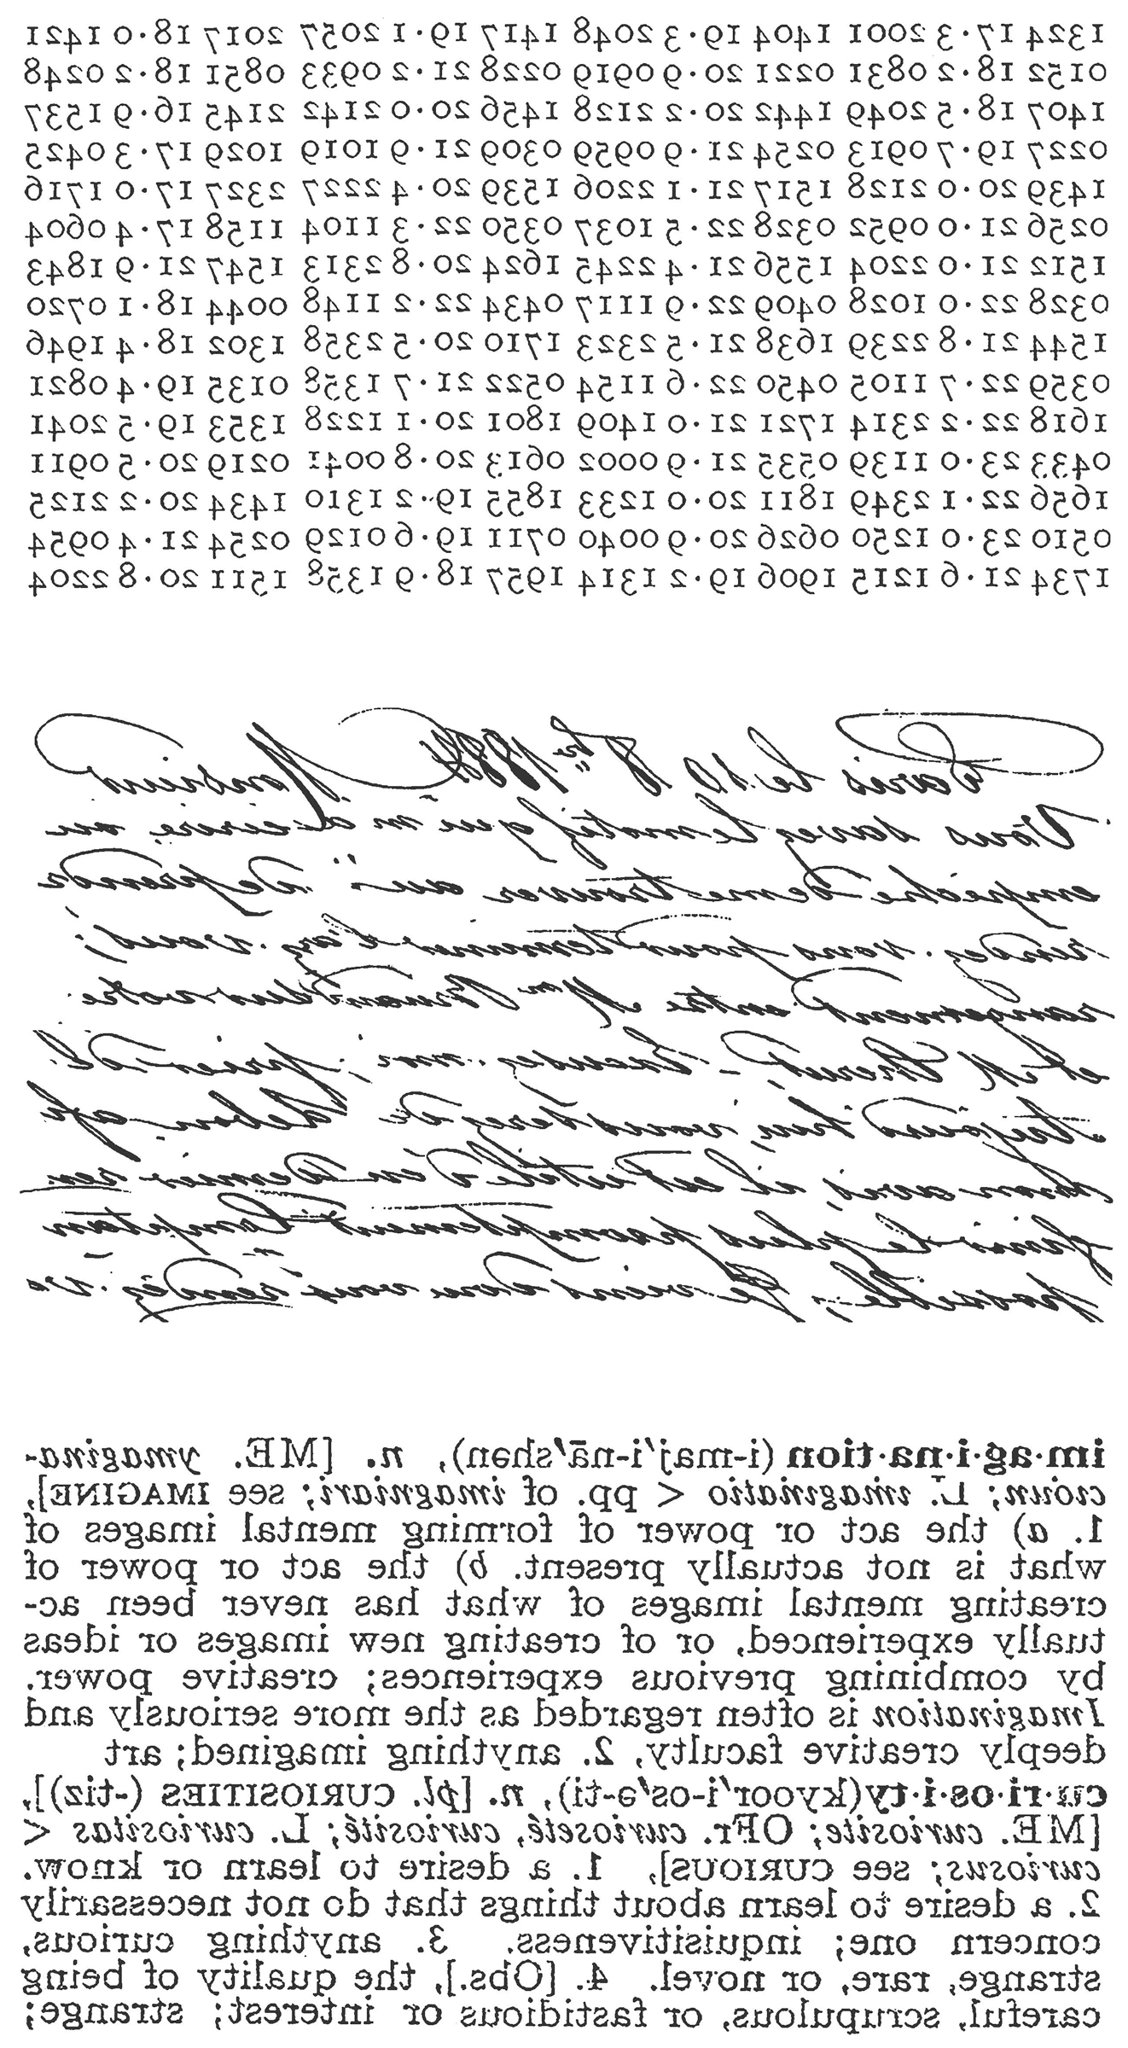 1324 17·3 2001 1404 19·3 2048 1417 19·1 2057 2017 18·0 1421
0152 18·2 0831 0221 20·9 0919 0228 21·2 0933 0851 18·2 0248
1407 18·5 2049 1442 20·2 2128 1456 20·0 2142 2145 16·9 1537
0227 19·7 0913 0254 21·9 0959 0309 21·9 1019 1029 17·3 0425
1439 20·0 2128 1517 21·1 2206 1539 20·4 2227 2327 17·0 1716
0256 21·0 0952 0328 22·5 1037 0350 22·3 1104 1158 17·4 0604
1512 21·0 2204 1556 21·4 2245 1624 20·8 2313 1547 21·9 1843
0328 22·0 1028 0409 22·9 1117 0434 22·2 1148 0044 18·1 0720
1544 21·8 2239 1638 21·5 2323 1710 20·5 2358 1302 18·4 1946
0359 22·7 1105 0450 22·6 1154 0522 21·7 1358 0135 19·4 0821
1618 22·2 2314 1721 21·0 1409 1801 20·1 1228 1353 19·5 2041
0433 23·0 1139 0535 21·9 0002 0613 20·8 0041 0219 20·5 0911
1656 22·1 2349 1811 20·0 1233 1855 19·2 1310 1434 20·2 2125
0510 23·0 1250 0626 20·9 0040 0711 19·6 0129 0254 21·4 0954
1734 21·6 1215 1906 19·2 1314 1957 18·9 1358 1511 20·8 2204
Paris le 10 8bre 1884 Monsieur
Vous savez le motif qui m'a
empêché de me trouver au
rendez-vous pour terminer
entre Mr
et M Excusez-moi
toujours vous serez
mon avis il est utile d'en
finir le plus promptement Comptan
possible; Je viens donc vous
im·ag·i·na·tion (i-maj'i-nā'shən), n. [ME. ymagina-
cioun; L. imaginatio < pp. of imaginari; see IMAGINE],
1. a) the act or power of forming mental images of
what is not actually present. b) the act or power of
creating mental images of what has never been ac-
tually experienced, or of creating new images or ideas
by combining previous experiences; creative power.
Imagination is often regarded as the more seriously and
deeply creative faculty, 2. anything imagined; art
cu·ri·os·i·ty (kyoor'i-os'ə-ti), n. [pl. CURIOSITIES (-tiz)],
[ME. curiosite; OFr. curioseté, curiosité; L. curiositas <
curiosus; see CURIOUS], 1. a desire to learn or know.
2. a desire to learn about things that do not necessarily
concern one; inquisitiveness. 3. anything curious,
strange, rare, or novel. 4. [Obs.], the quality of being
careful, scrupulous, or fastidious or interest; strange;